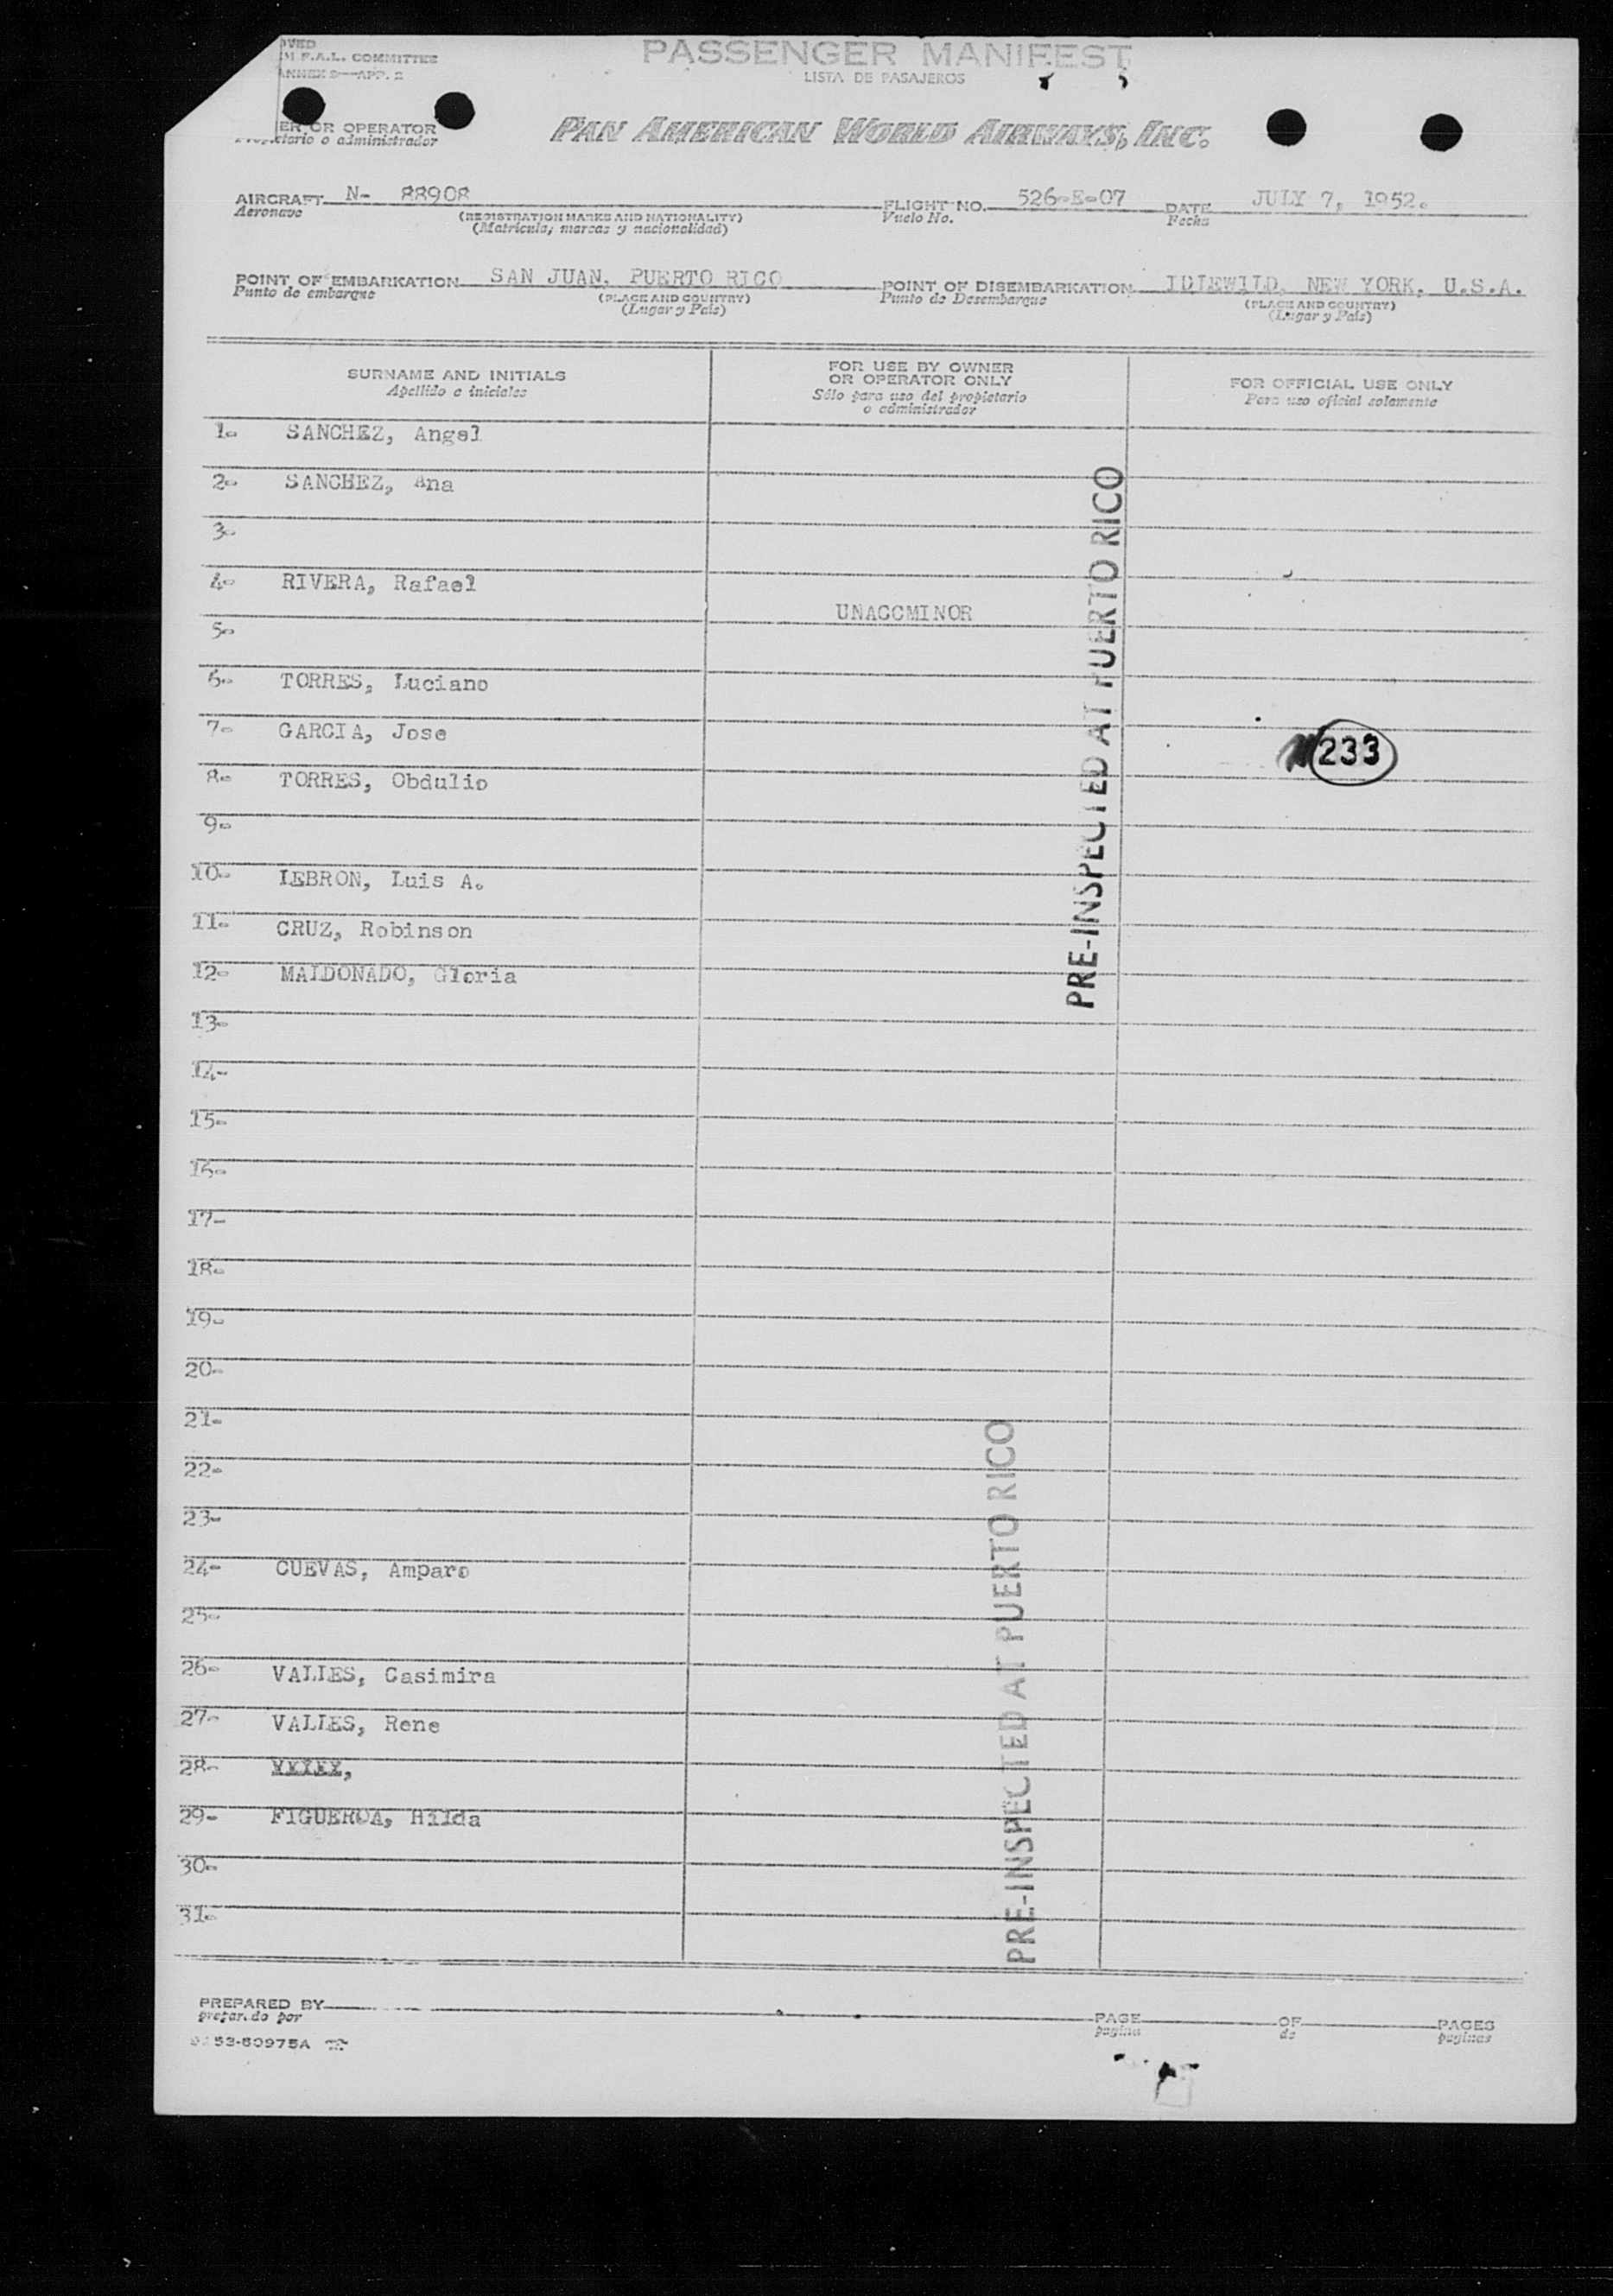 PASSENGER MANIFEST
LISTA DE PASAJEROS
F.A.L. COMMITTEE
ANNEX 9—APP. 2
OR OPERATOR
o administrador
PAN AMERICAN WORLD AIRWAYS, INC.
AIRCRAFT N- 88908 FLIGHT NO. 526-E-07 DATE JULY 7, 1952.
Aeronave (REGISTRATION MARKS AND NATIONALITY) Vuelo No. Fecha
(Matricula, marcas y nacionalidad)
POINT OF EMBARKATION SAN JUAN, PUERTO RICO POINT OF DISEMBARKATION IDLEWILD, NEW YORK, U.S.A.
Punto de embarque (PLACE AND COUNTRY) Punto de Desembarque (PLACE AND COUNTRY)
(Lugar y Pais) (Lugar y Pais)
SURNAME AND INITIALS
Apellido e iniciales
FOR USE BY OWNER
OR OPERATOR ONLY
Sólo para uso del propietario
o administrador
FOR OFFICIAL USE ONLY
Para uso oficial solamente
1- SANCHEZ, Angel
2- SANCHEZ, Ana
3-
4- RIVERA, Rafael
UNACCMINOR
5-
6- TORRES, Luciano
7- GARCIA, Jose
233
8- TORRES, Obdulio
9-
10- LEBRON, Luis A.
11- CRUZ, Robinson
12- MALDONADO, Gloria
13-
14-
15-
16-
17-
18-
19-
20-
21-
22-
23-
24- CUEVAS, Amparo
25-
26- VALLES, Casimira
27- VALLES, Rene
28-
29- FIGUEROA, Hilda
30-
31-
PRE-INSPECTED AT PUERTO RICO
PRE-INSPECTED AT PUERTO RICO
PREPARED BY PAGE OF PAGES
preparado por pagina de paginas
53-60975A